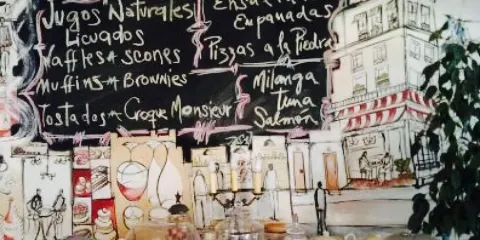 Jugos Naturales
Licuados
Waffles * scones
Muffins * Brownies
Tostados * Croque Monsieur
Empanadas
Pizzas a la Piedra
Milanga
Tuna
Salmon